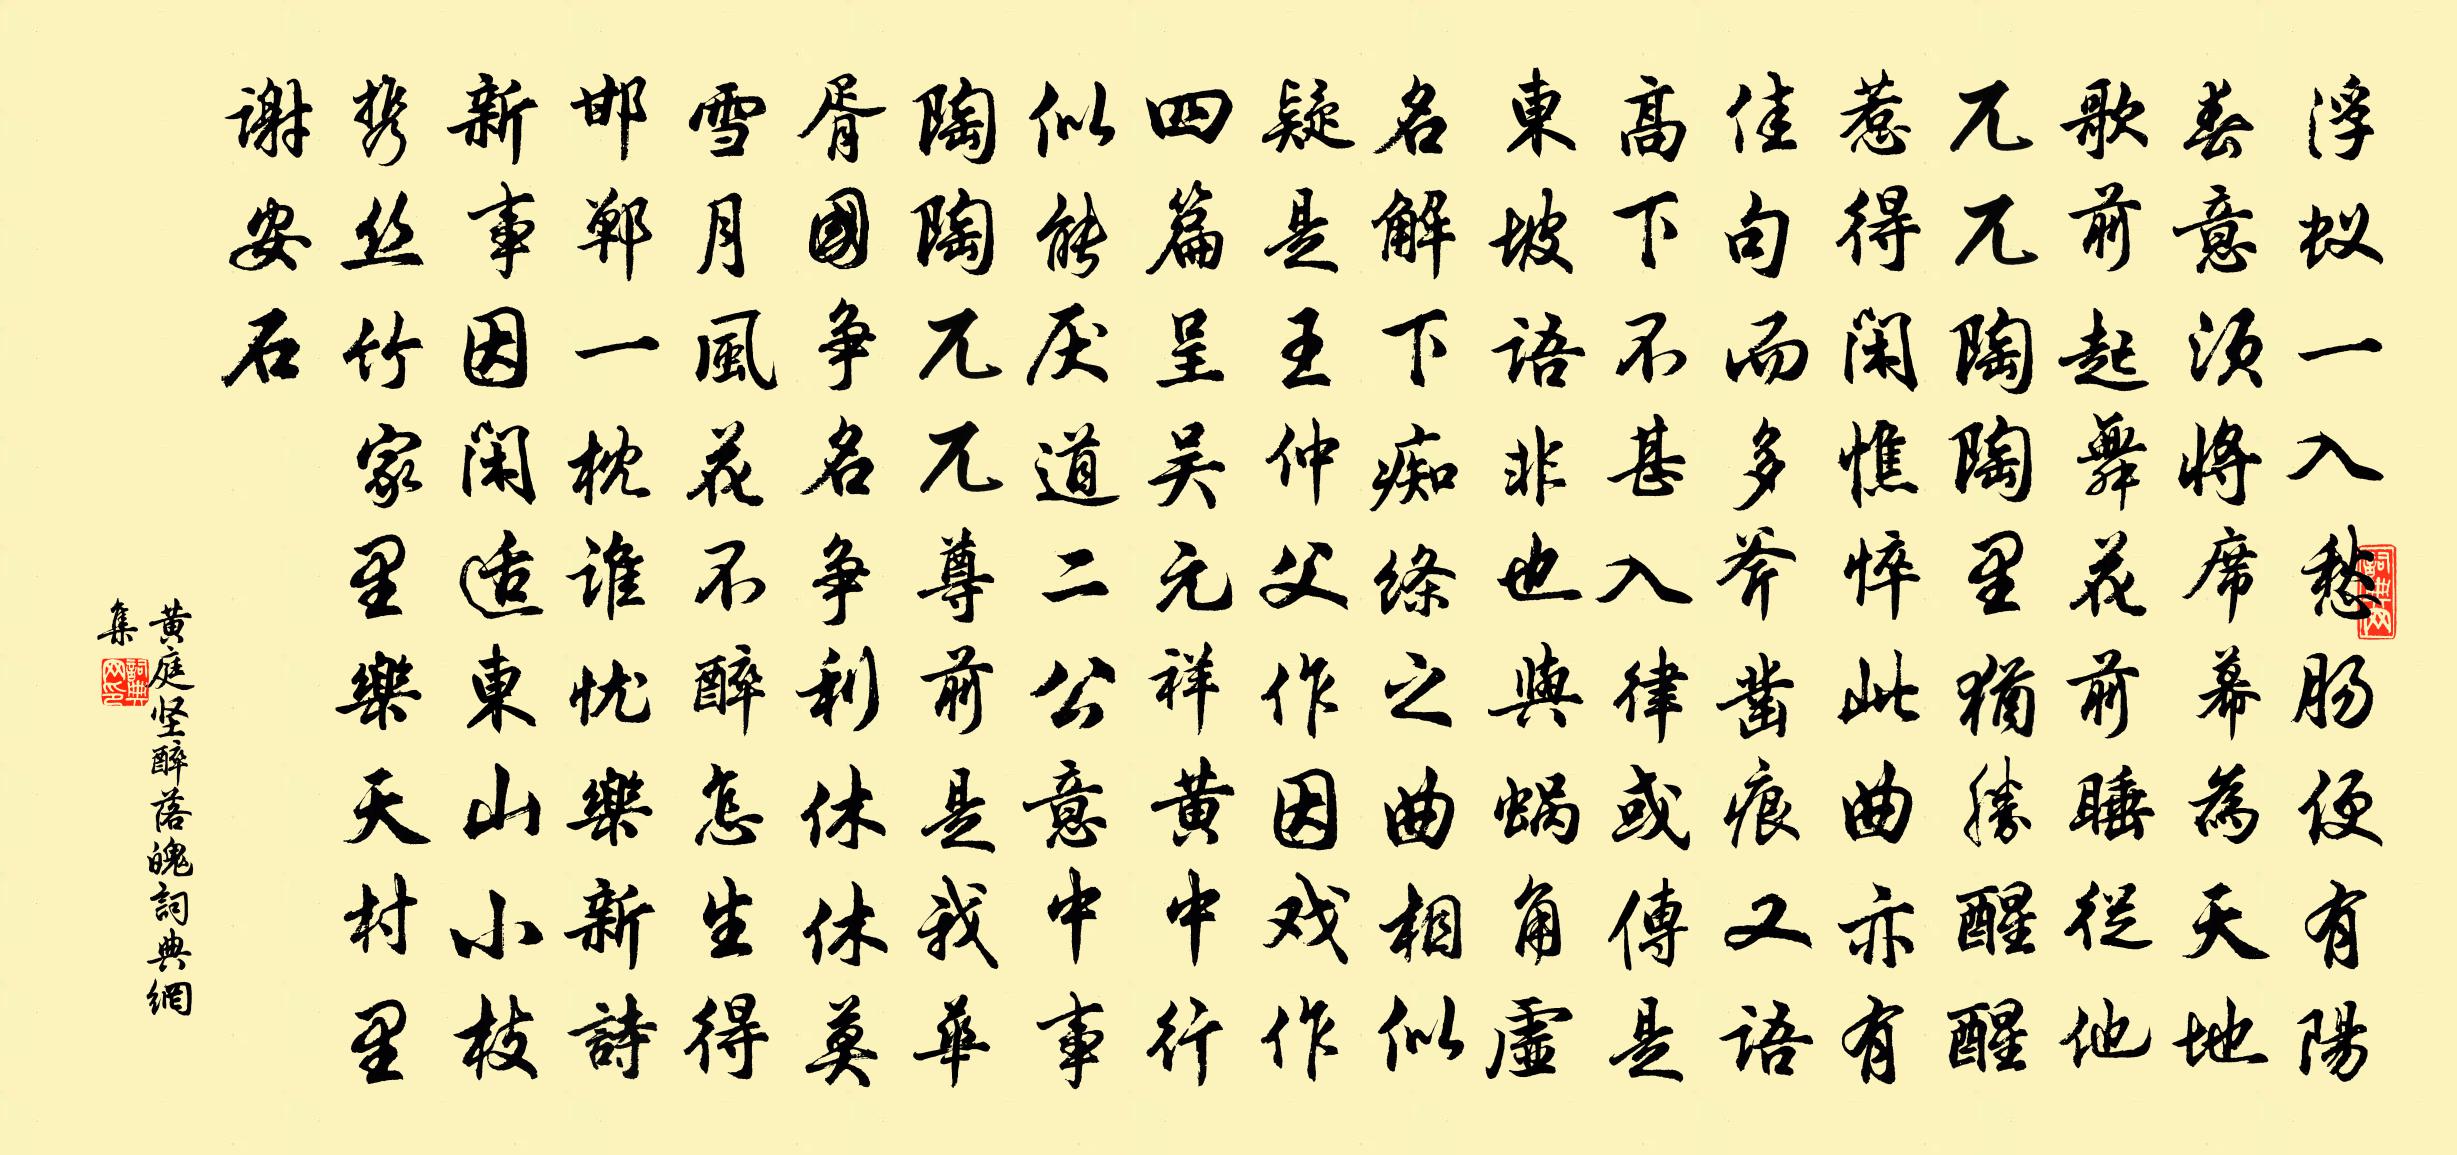 浮蚁一入愁肠便有陽
春意须将席幕為天地
歌前起舞花前睡從他
兀兀陶陶里猶勝醒醒
惹得闲憔悴此曲亦有
佳句而多斧凿痕又语
高下不甚入律或傳是
東坡语非也與蜗角虚
名解下痴绦之曲相似
疑是王仲父作因戏作
四篇呈吴元祥黄中行
似能厌道二公意中事
陶陶兀兀尊前是我華
胥國争名争利休休莫
雪月風花不醉怎生得
邯郸一枕谁忧樂新詩
新事因闲适東山小枝
携丝竹家里樂天村里
谢安石
黄庭坚醉落魄詞典網
集
詞典网
詞典网印